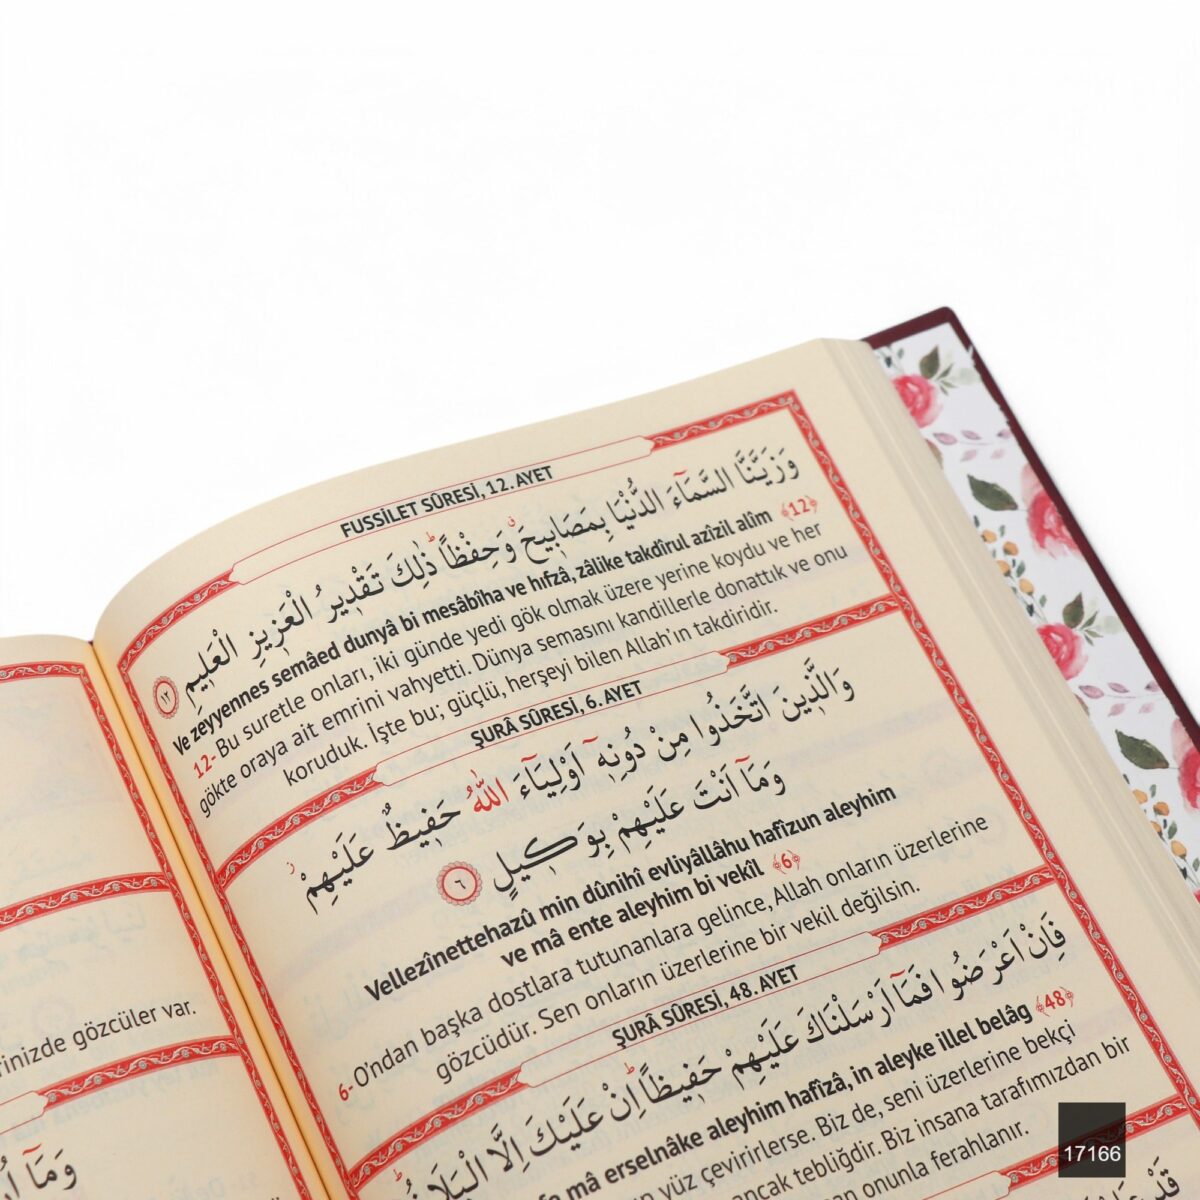 FUSSİLET SÛRESİ, 12. AYET
وَزَيَّنَّا السَّمَٓاءَ الدُّنْيَا بِمَصَاب۪يحَۗ وَحِفْظًاۜ ذٰلِكَ تَقْد۪يرُ الْعَز۪يزِ الْعَل۪يمِ ﴿١٢﴾
Ve zeyyennes semâed dunyâ bi mesâbîha ve hıfzâ, zâlike takdîrul azîzil alîm ﴾12﴿
12- Bu suretle onları, iki günde yedi gök olmak üzere yerine koydu ve her
gökte oraya ait emrini vahyetti. Dünya semasını kandillerle donattık ve onu
koruduk. İşte bu; güçlü, herşeyi bilen Allah'ın takdiridir.
ŞURÂ SÛRESİ, 6. AYET
وَالَّذ۪ينَ اتَّخَذُوا مِنْ دُونِه۪ٓ اَوْلِيَٓاءَ اللّٰهُ حَف۪يظٌ عَلَيْهِمْۘ
وَمَٓا اَنْتَ عَلَيْهِمْ بِوَك۪يلٍ ﴿٦﴾
Vellezînettehazû min dûnihî evliyallâhu hafîzun aleyhim
ve mâ ente aleyhim bi vekîl ﴾6﴿
6- O'ndan başka dostlara tutunanlara gelince, Allah onların üzerlerine
gözcüdür. Sen onların üzerlerine bir vekil değilsin.
ŞURÂ SÛRESİ, 48. AYET
فَاِنْ اَعْرَضُوا فَمَٓا اَرْسَلْنَاكَ عَلَيْهِمْ حَف۪يظًاۜ اِنْ عَلَيْكَ اِلَّا الْبَلَاغُۜ
mâ erselnâke aleyhim hafîzâ, in aleyke illel belâg ﴾48﴿
yüz çevirirlerse. Biz de, seni üzerlerine bekçi
ancak tebliğdir. Biz insana tarafımızdan bir
onunla ferahlanır.
gözcüler var.
وَمَٓا
17166